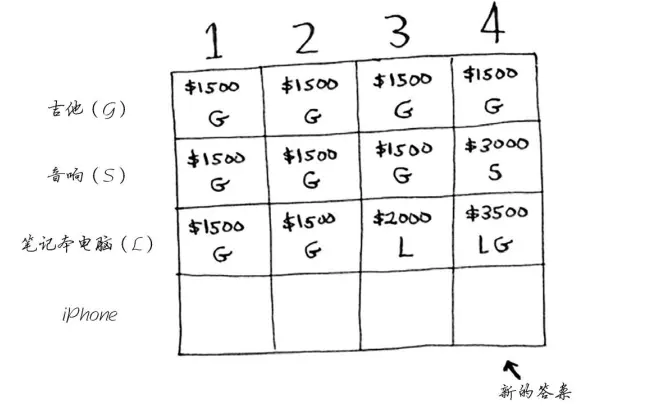 1 2 3 4
吉他（G） $1500 G $1500 G $1500 G $1500 G
音响（S） $1500 G $1500 G $1500 G $3000 S
笔记本电脑（L） $1500 G $1500 G $2000 L $3500 LG
iPhone
新的答案